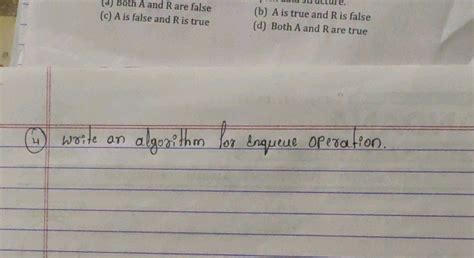 (a) Both A and R are false
(b) A is true and R is false
(c) A is false and R is true
(d) Both A and R are true
(4) write an algorithm for Enqueue operation.